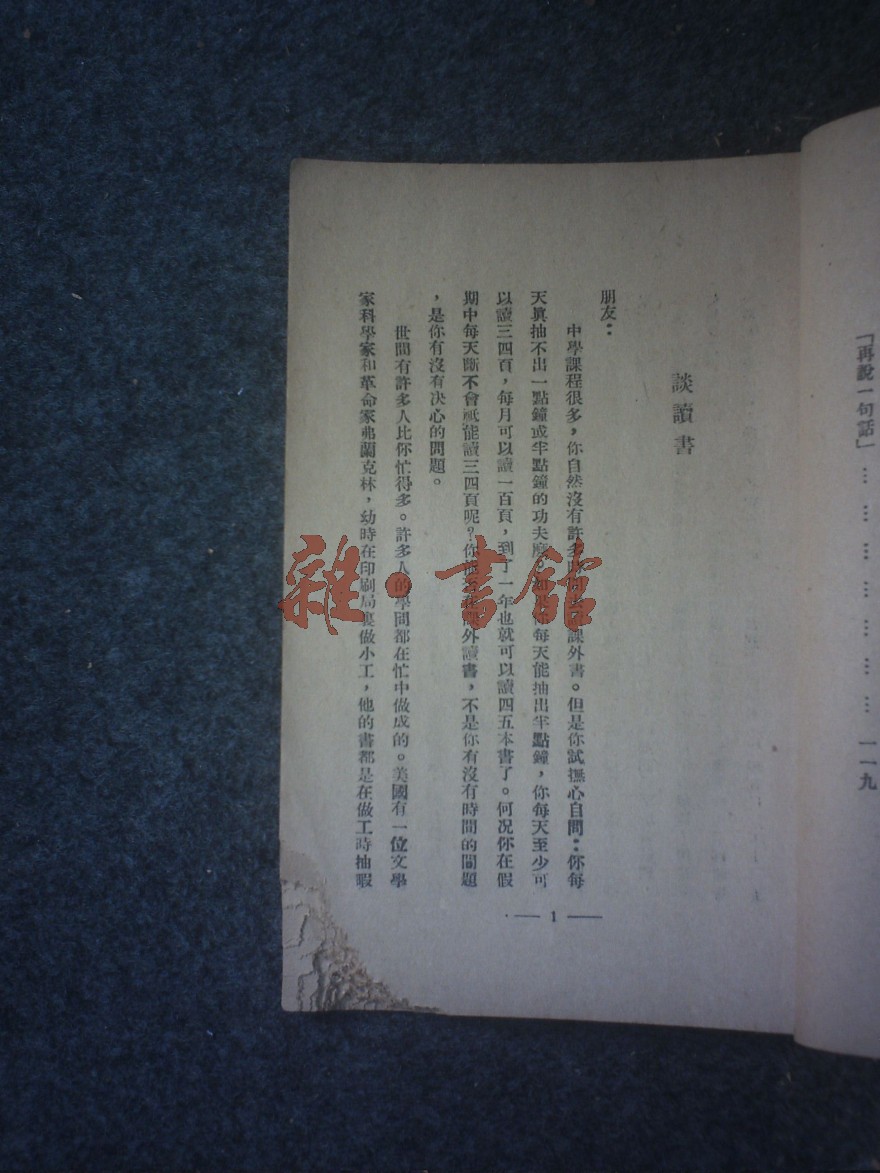 「再說一句話」… … … … … … … 一一九
談讀書
朋友：
中學課程很多，你自然沒有許多時間去讀課外書。但是你試撫心自問：你每
天眞抽不出一點鐘或半點鐘的功夫麽？如果你每天能抽出半點鐘，你每天至少可
以讀三四頁，每月可以讀一百頁，到了一年也就可以讀四五本書了。何况你在假
期中每天斷不會祇能讀三四頁呢？你能否在課外讀書，不是你有沒有時間的問題
，是你有沒有決心的問題。
世間有許多人比你忙得多。許多人的學問都在忙中做成的。美國有一位文學
家科學家和革命家弗蘭克林，幼時在印刷局裏做小工，他的書都是在做工時抽暇
— 1 —
雜·書館